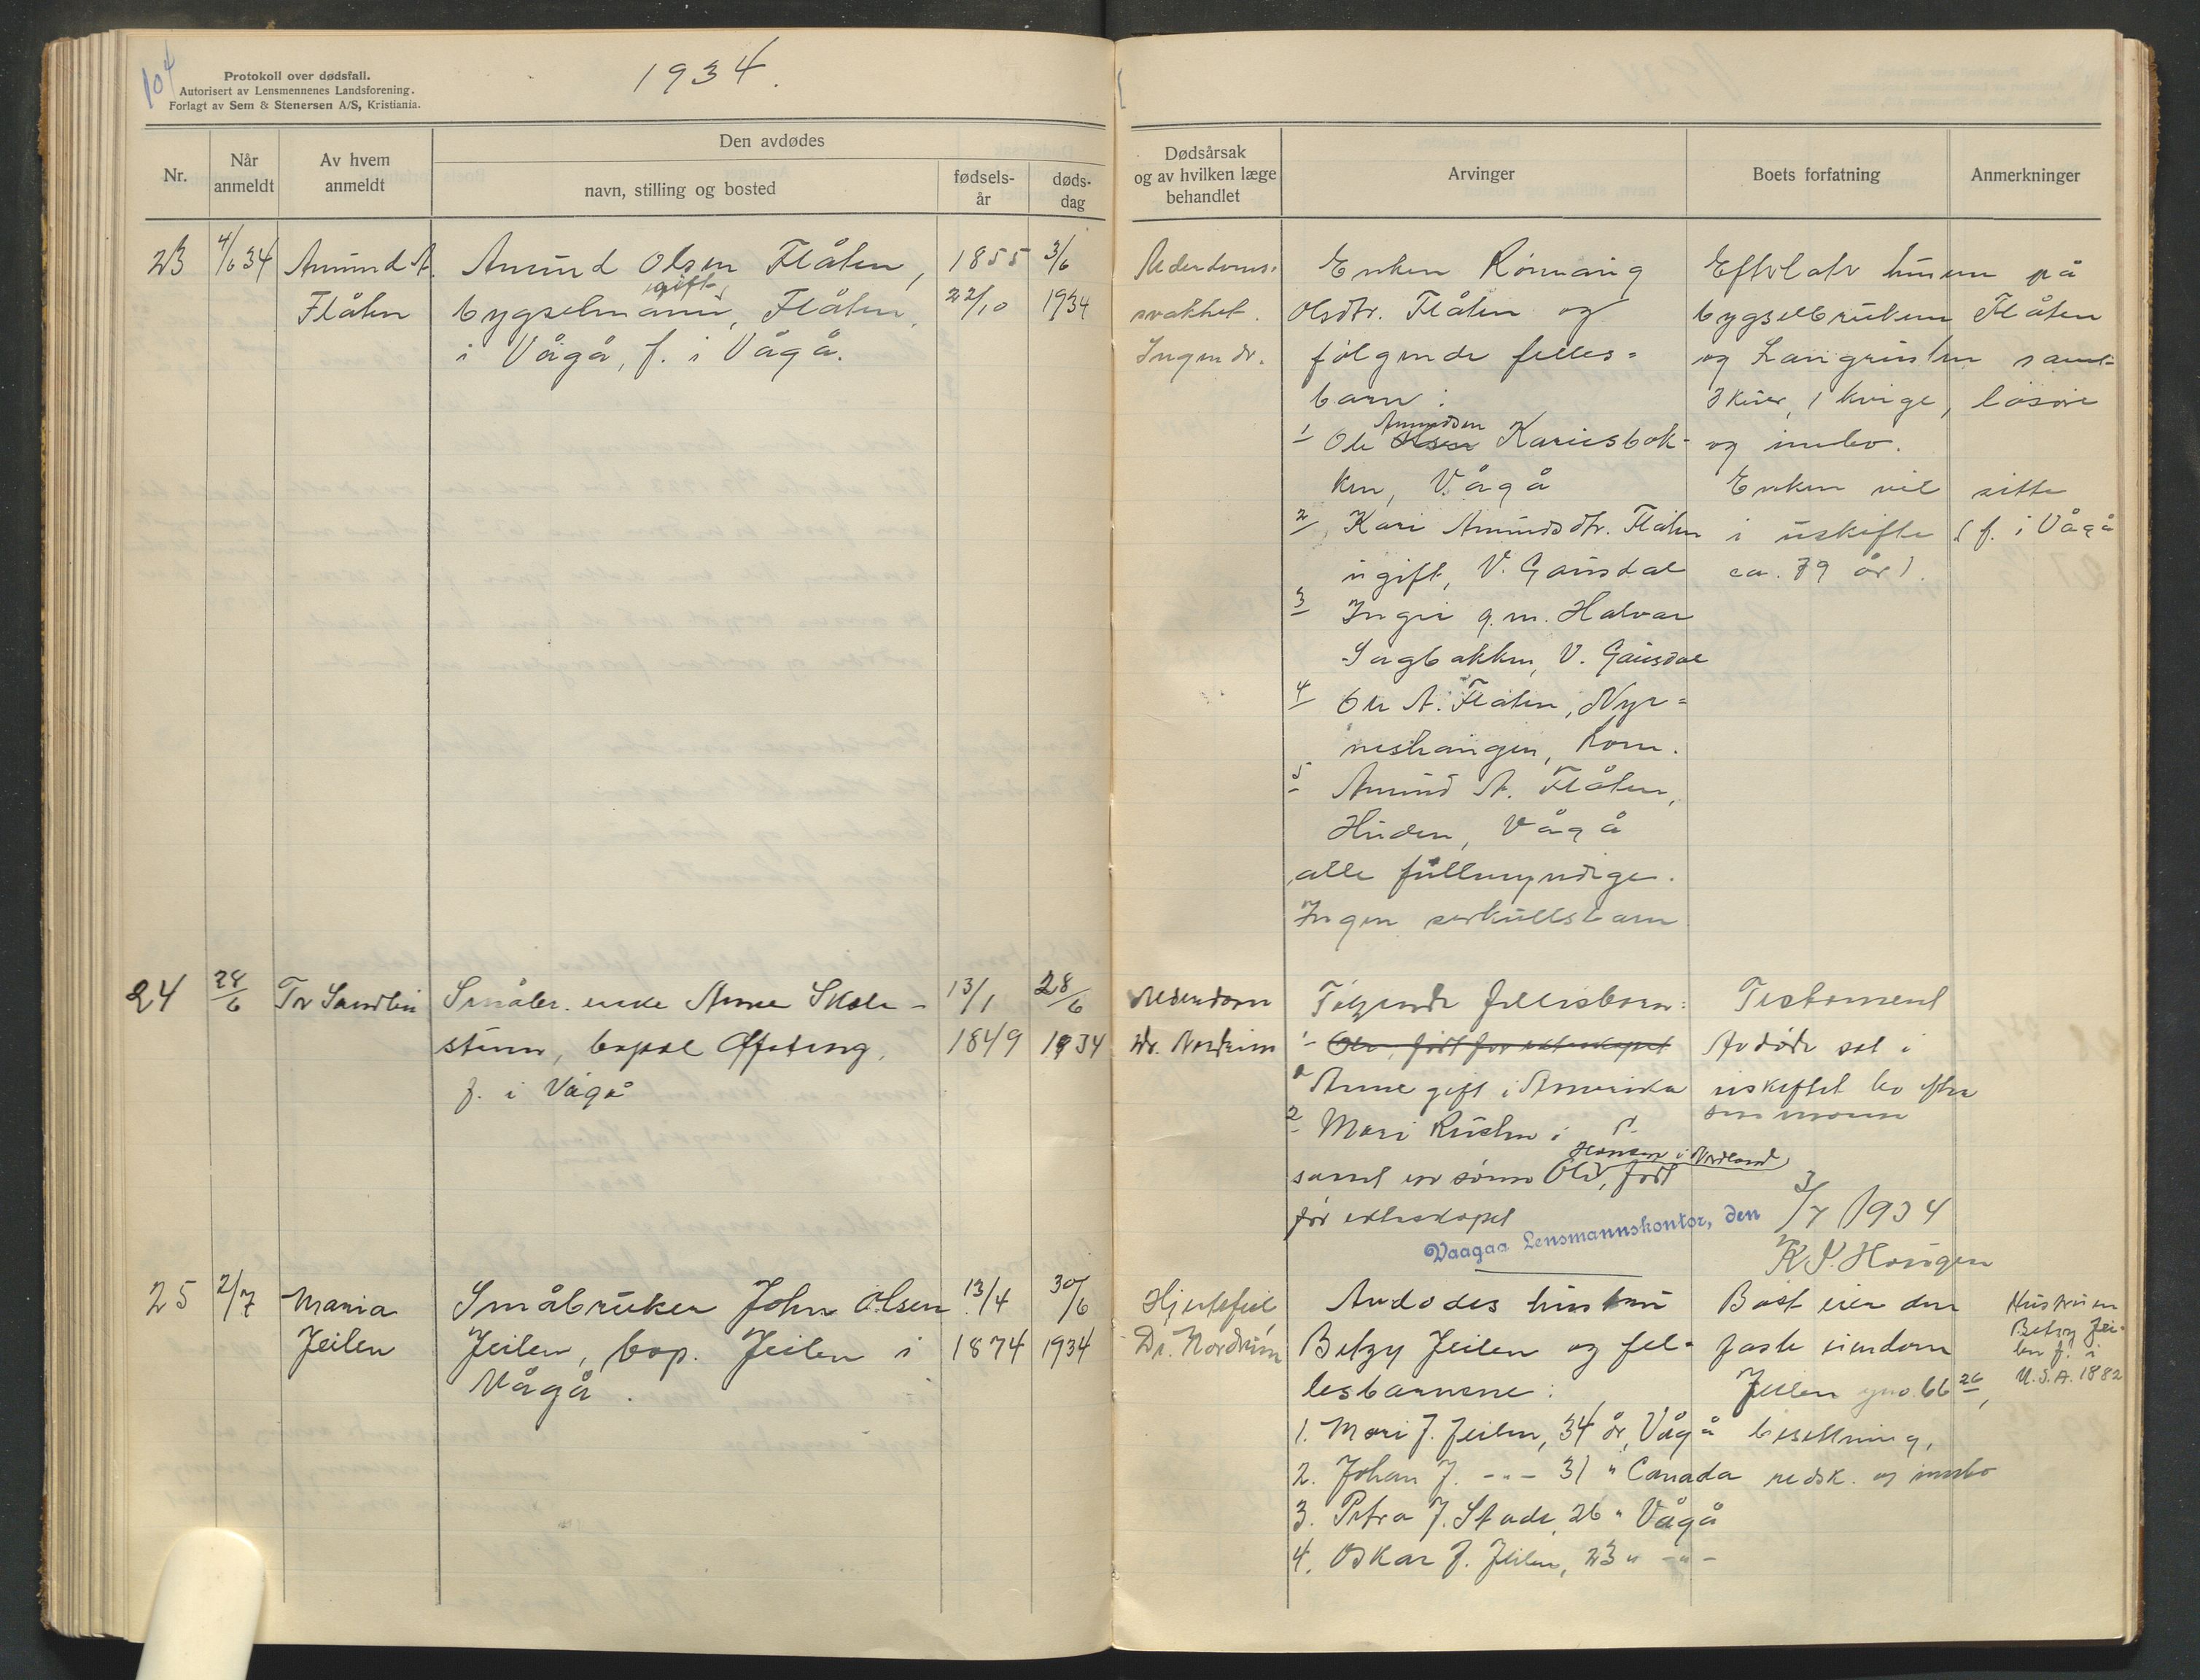 104
Protokoll over dødsfall.
Autorisert av Lensmennenes Landsforening.
Forlagt av Sem & Stenersen A/S, Kristiania.
1934.
Nr.
Når anmeldt
Av hvem anmeldt
Den avdødes
navn, stilling og bosted
fødsels-år
døds-dag
Dødsårsak
og av hvilken læge
behandlet
Arvinger
Boets forfatning
Anmerkninger
23
4/6 34
Amund A.
Flåten
Amund Olsen Flåten,
gift,
bygselmann, Flåten,
i Vågå, f. i Vågå.
1855
22/10
3/6
1934
Alderdoms-
svakhet.
Ingen dr.
Enken Rønnaug
Olsdtr. Flåten og
følgende felles=
barn:
1 Ole Olsen Amundsen Kariesbak-
ken, Vågå
2 Kari Amundsdtr. Flåten
ugift, V. Gausdal
3 Ingri g.m. Halvar
Sagbakken, V. Gausdal
4 Ole A. Flåten,
Rom.
5 Amund A. Flåten,
Huden, Vågå
alle fullmyndige.
Ingen særkullsbarn
Efterlater husene på
bygselbruket Flåten
og samt
3 kuer, 1 kvige, løsøre
og innbo.
Enken vil sitte
i uskifte (f. i Vågå
ca. 79 år).
24
28/6
Tor Sandbu
Småbr. enke Anne Skole-
stuen, bopæl
f. i Vågå
13/1
1849
28/6
1934
Alderdom
Dr. Nordrum
Følgende fellesbarn:
1 Ole, født før ekteskapet
1 Anne gift i Amerika
2 Mari Rusten i
Hansen i Nordland
samt en sønn Ole, født
før ekteskapet
Testament
Avdøde sat i
uskiftet bo efter
sin mann
Vaagaa Lensmannskontor, den 3/7 1934
K. P. Haugen
25
2/7
Maria
Jeilen
Småbruker John Olsen
Jeilen, bop. Jeilen i
Vågå.
13/4
1874
30/6
1934
Hjertefeil,
Dr. Nordrum
Avdødes hustru
Betzy Jeilen og fel-
lesbarnene:
1. Mari J. Jeilen, 34 år, Vågå
2. Johan J. -"- 31 " Canada
3. Petra J. Stade, 26 " Vågå
4. Oskar J. Jeilen, 23 " -"-
Boet eier den
faste eiendom
Jeilen gno. 66 26,
besetning,
redsk. og innbo
Hustruen
Betzy Jei-
len f. i
U.S.A. 1882